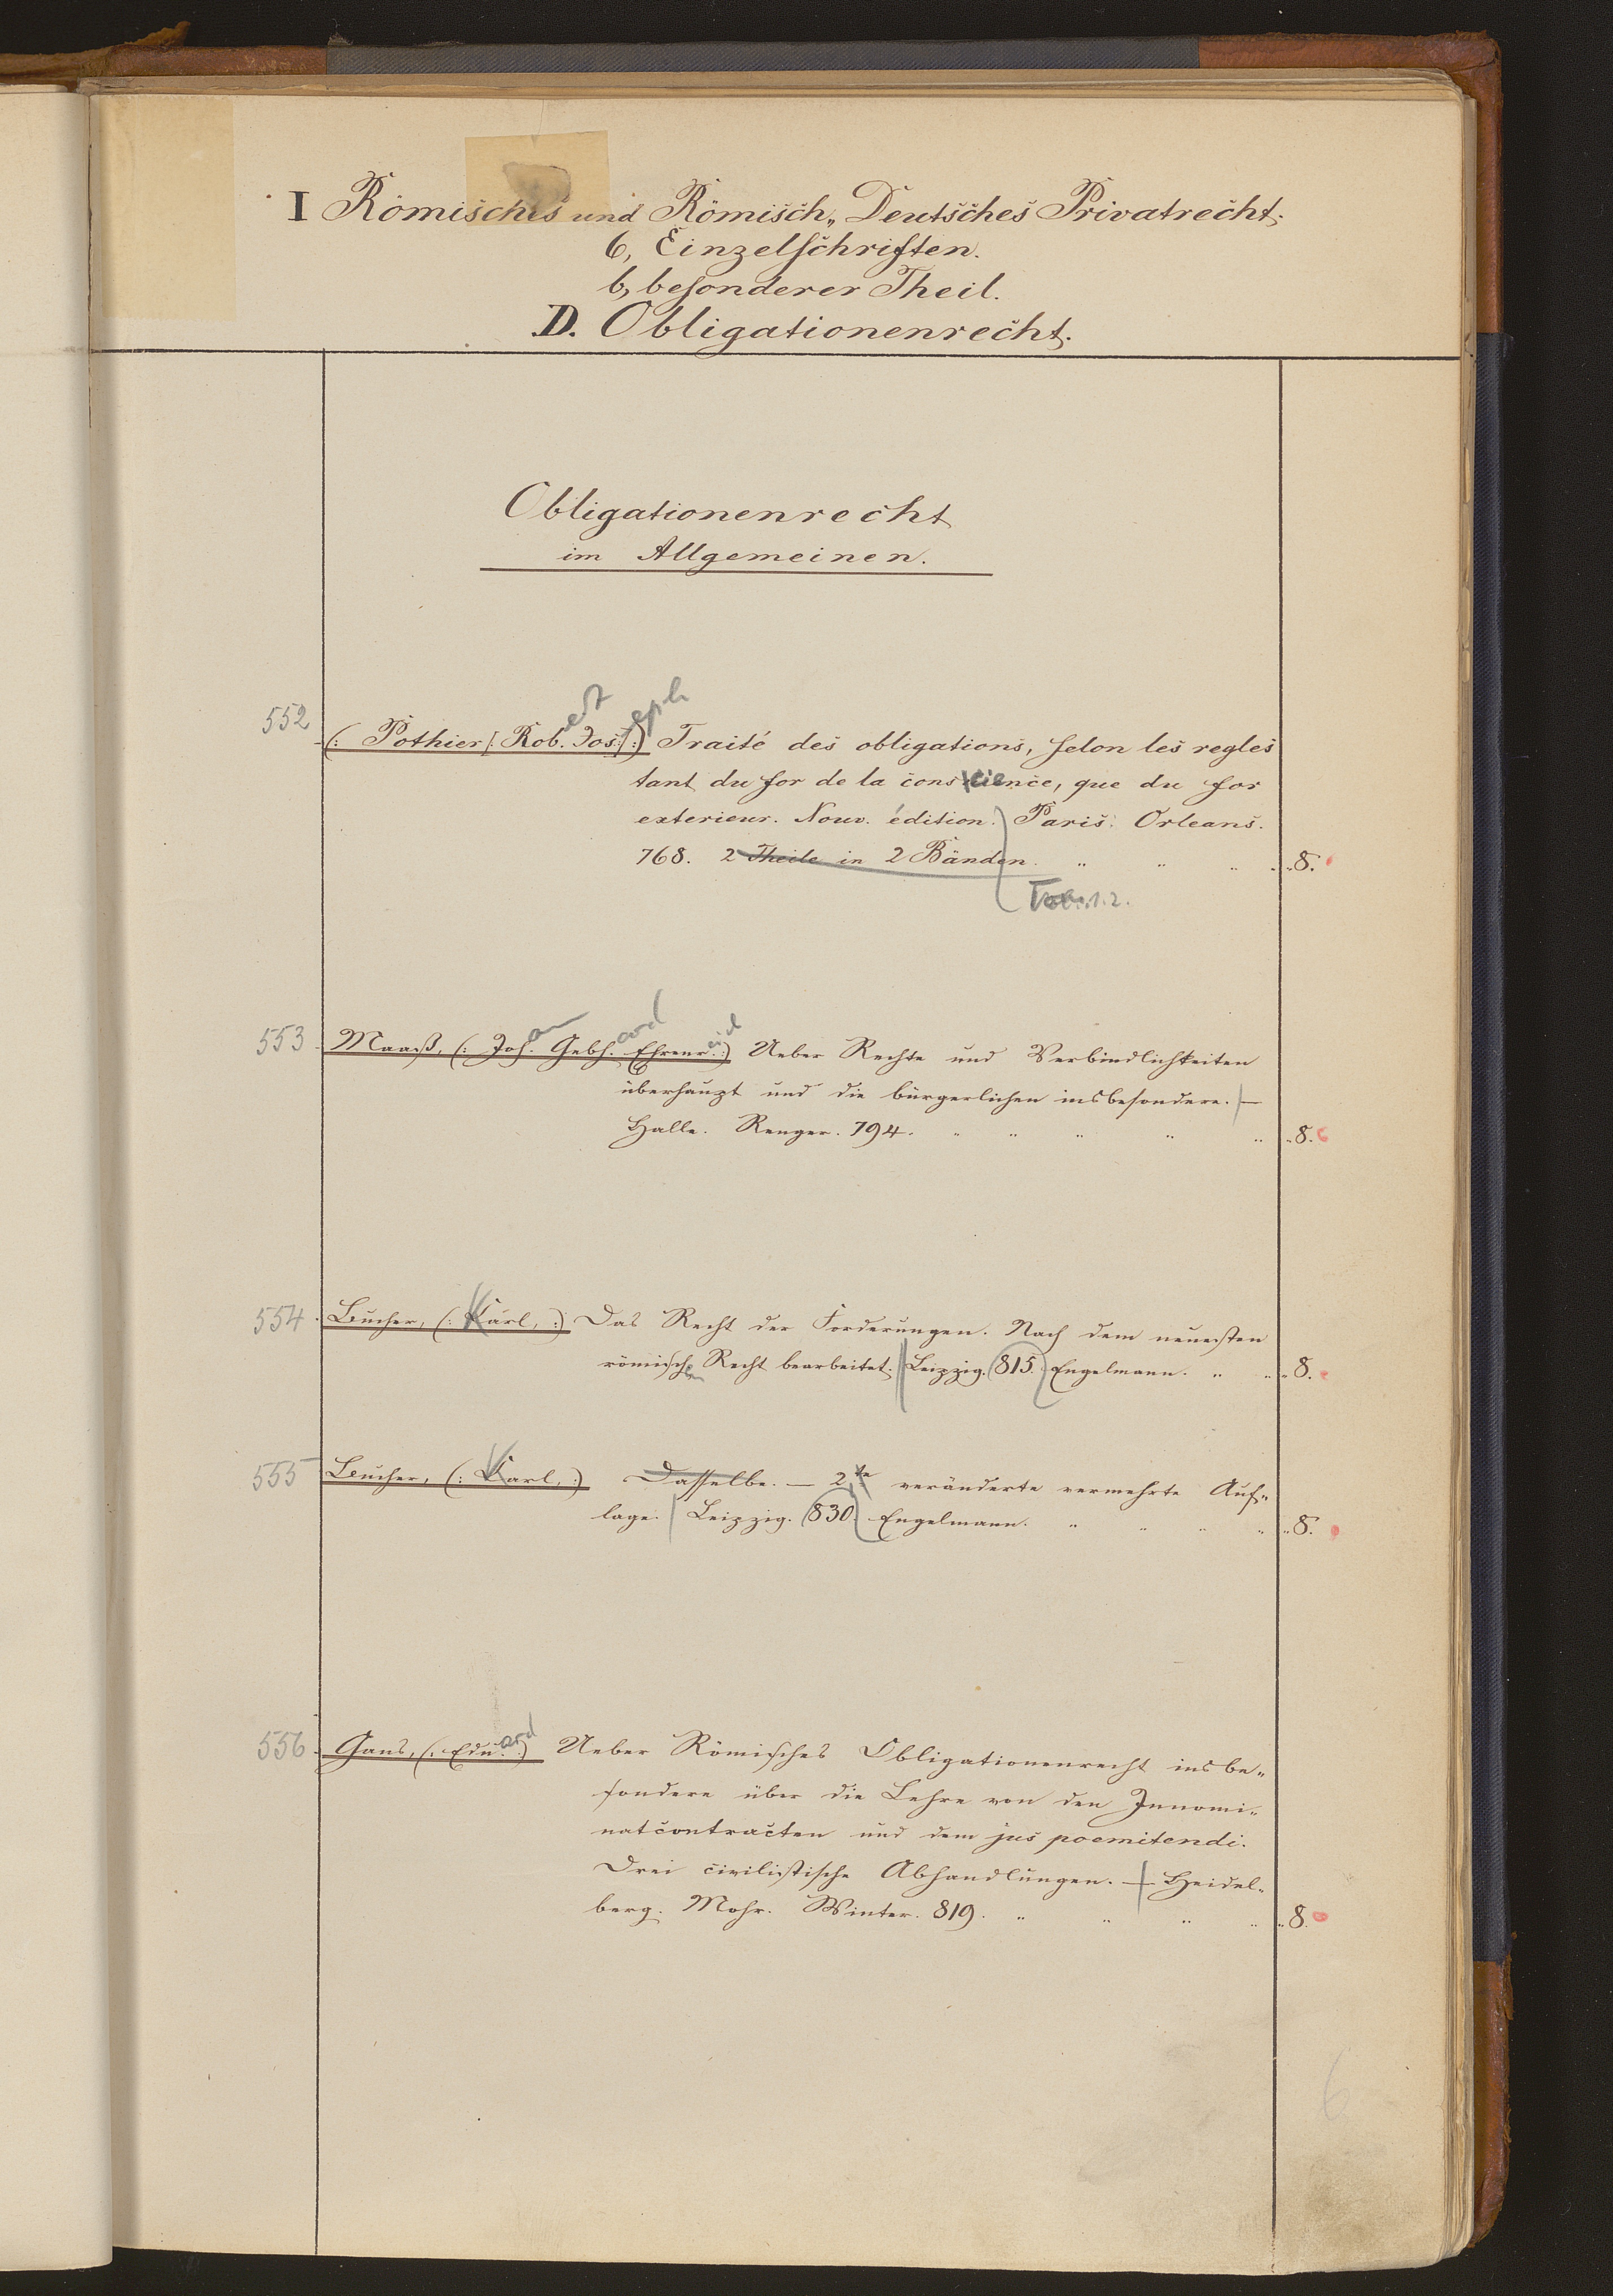 I Römisches und Römisch„ Deutsches Privatrecht.
6, Einzelschriften.
b, besonderer Theil.
D. Obligationenrecht.
Obligationenrecht
im Allgemeinen.
552
(: Pothier [: Rob.ert Jos:eph :] :) Traité des obligations, selon les regles
tant du for de la conscience, que du for
exterieur. Nouv. édition. Paris. Orleans.
768. 2 Theile in 2 Bänden. „ „ „ „ 8.
1.2.
553
Maaß, (: Joh.ann Gebh.ard Ehrenr.eich :) Ueber Rechte und Verbindlichkeiten
überhaupt und die bürgerlichen insbesondere. —
Halle. Renger. 794. „ „ „ „ „ „ 8.
554
Bucher, (: Karl, :) Das Recht der Forderungen. Nach dem neuesten
römischen Recht bearbeitet. Leipzig. 815. Engelmann. „ „ „ 8.
555
Bucher, (: Karl, :) Dasselbe. — 2.te veränderte vermehrte Auf„
lage. Leipzig. 830. Engelmann. „ „ „ „ „ 8.
556
Gans, (: Edu.ard :) Ueber Römisches Obligationenrecht insbe„
sondere über die Lehre von den Innomi„
natcontracten und dem jus poemitendi.
Drei civilistische Abhandlungen. — Heidel„
berg. Mohr. Winter. 819. „ „ „ „ „ 8.
6